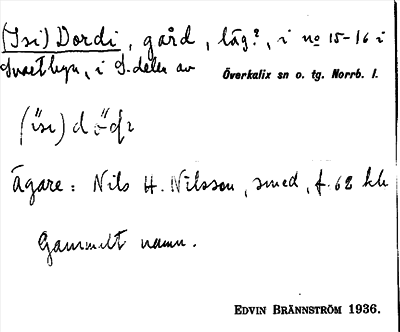 (Isi) Dordi, gård, läg?, i no 15-16 i
Svartbyn, i S. delen av Överkalix sn o. tg. Norrb. l.
Ägare: Nils H. Nilsson, smed, f. 62 kls
Gammalt namn.
EDVIN BRÄNNSTRÖM 1936.